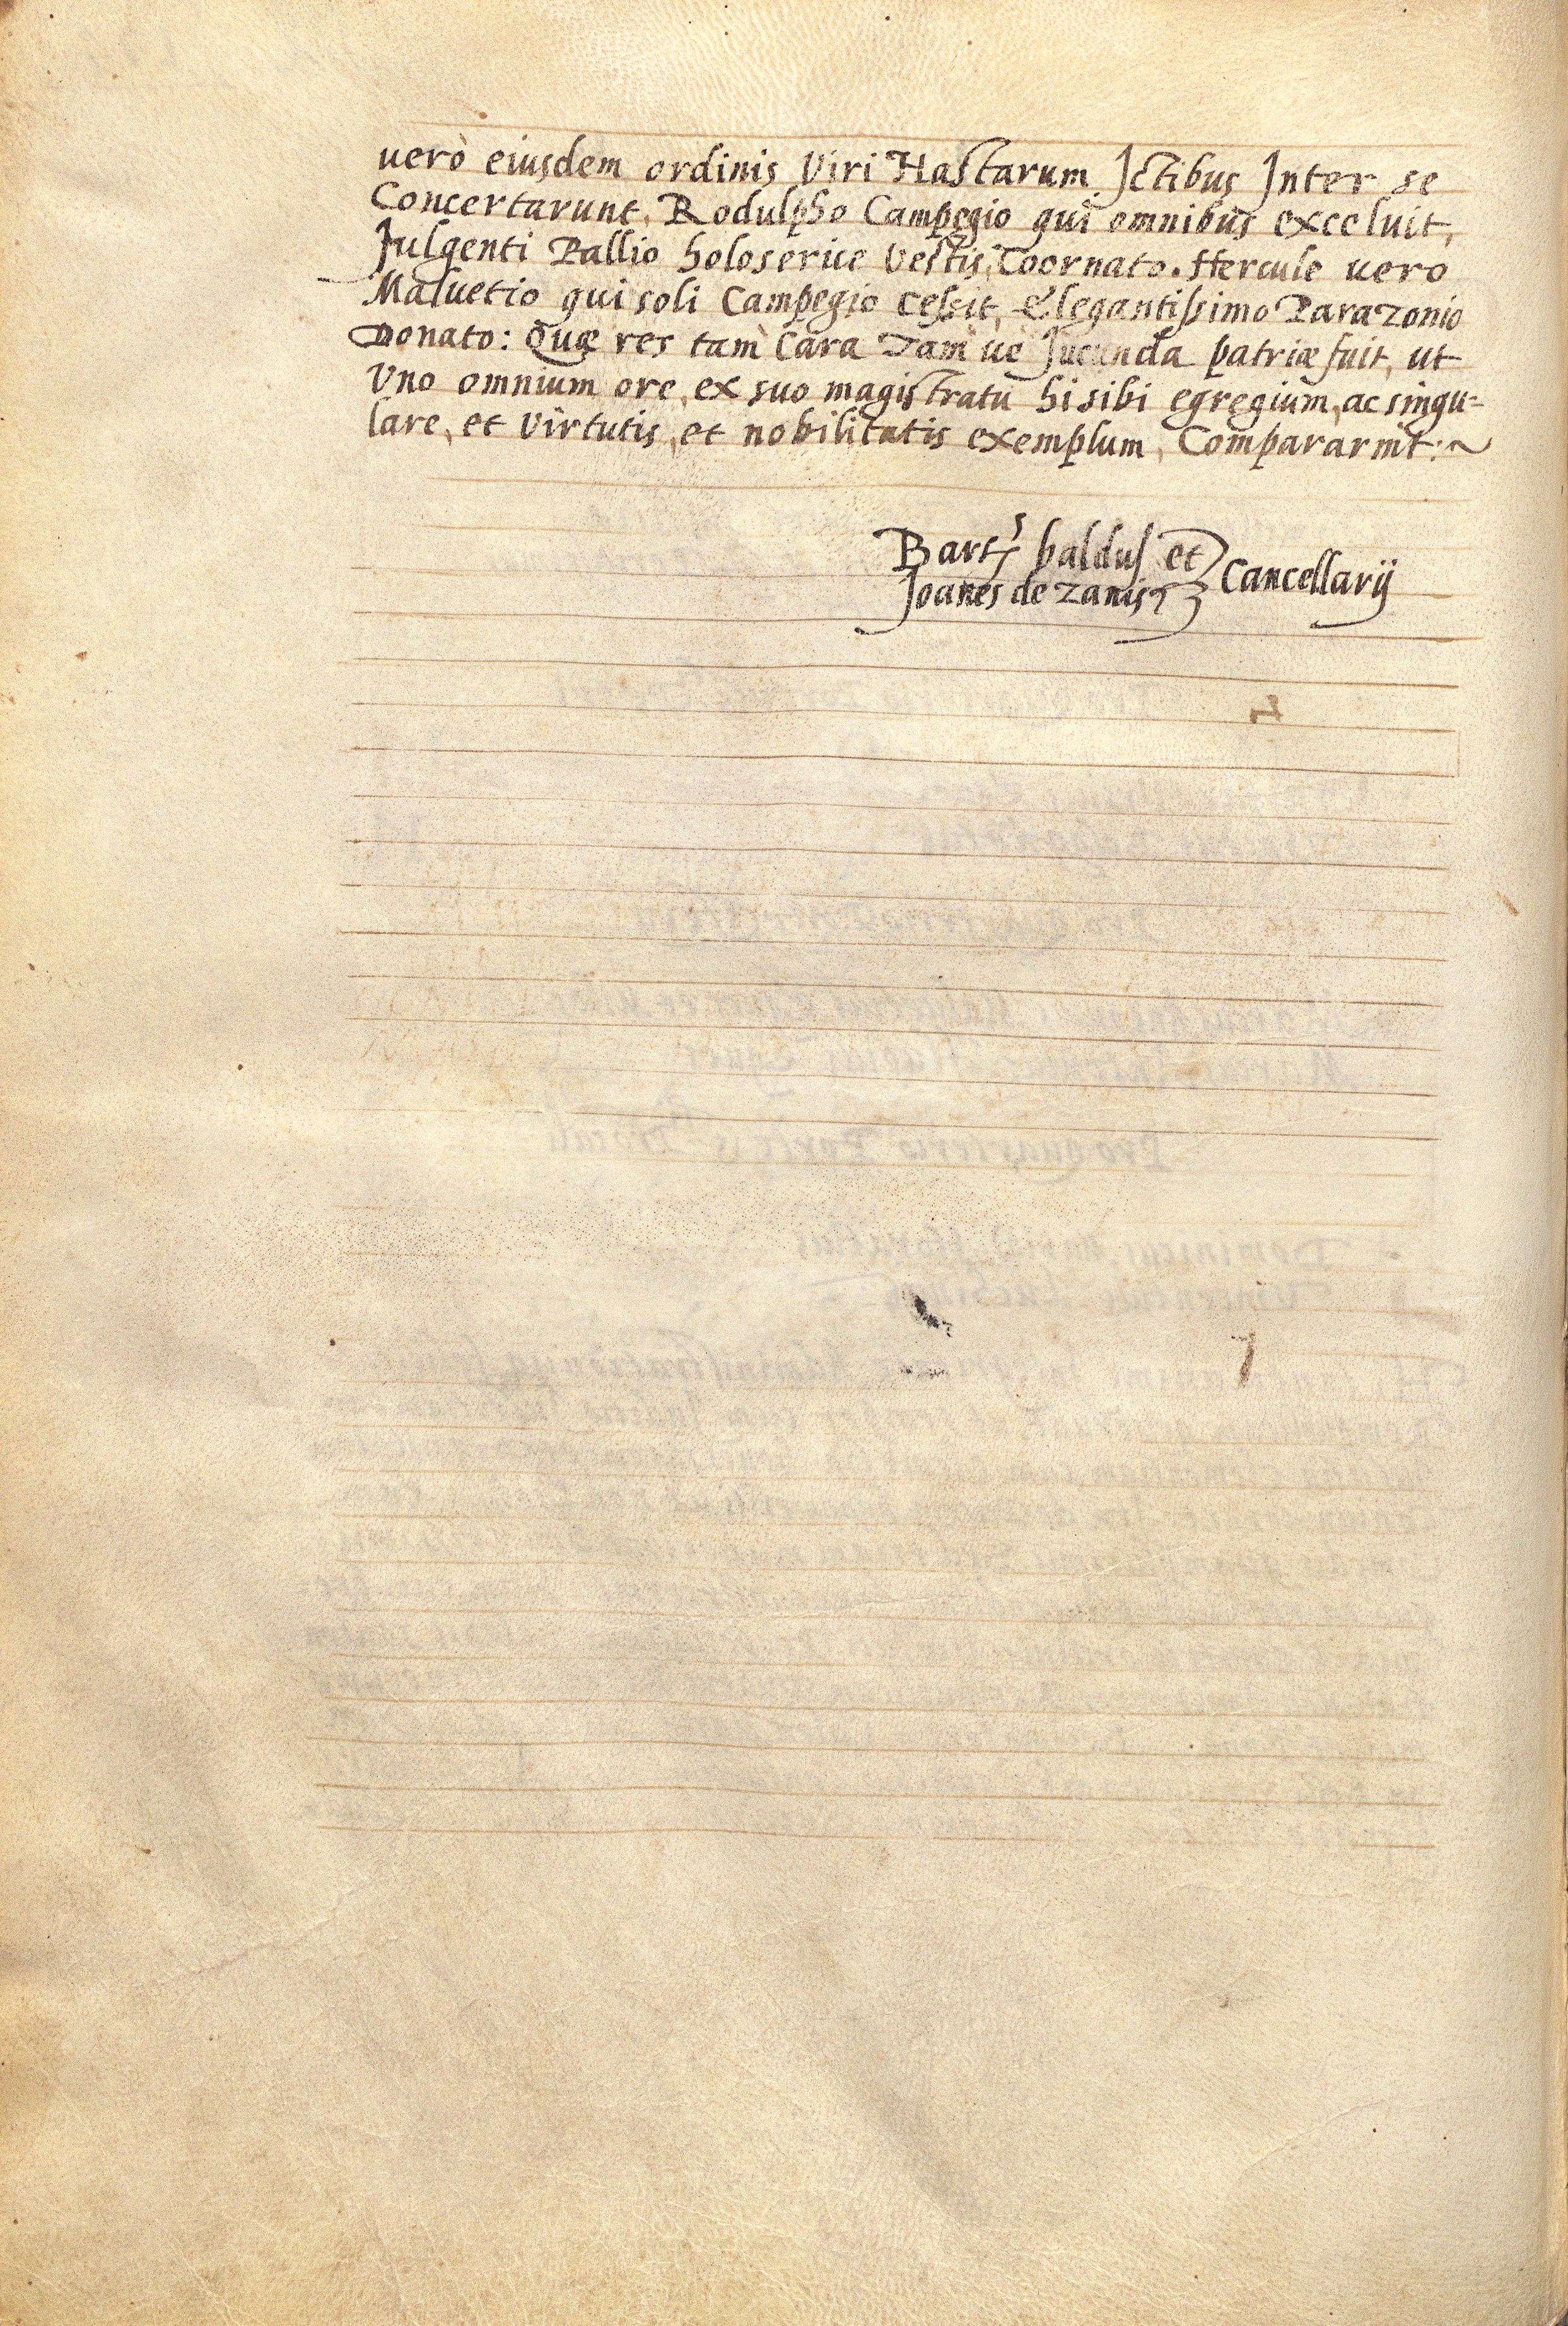 uerò eiusdem ordinis Viri Hastarum Ictibus Inter se
Concertarunt, Rodulpho Campegio qui omnibus exceluit,
fulgenti Pallio holoserice Vestis, Coornato. Hercule uero
Maluetio qui soli Campegio cessit, Elegantissimo Parazonio
Donato: Quæ res tam Cara Tam ue Jucunda patriæ fuit, ut
Vno omnium ore, ex suo magistratu hi sibi egregium, ac singu-
lare, et Virtutis, et nobilitatis exemplum, Compararint:~
Bart.s baldus et
Joanes de zanis
Cancellarij